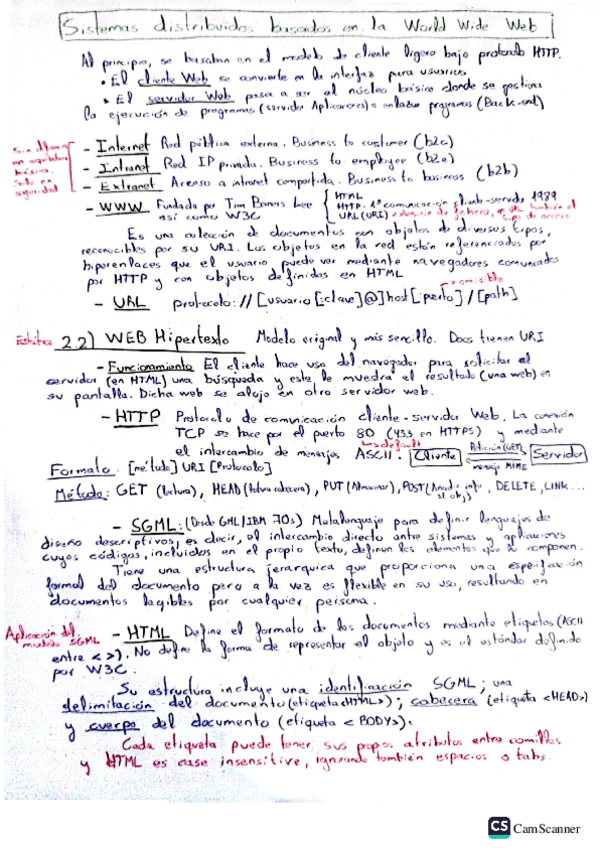 Sistemas distribuidos basados en la World Wide Web
Al principio, se basaban en el modelo de cliente ligero bajo protocolo HTTP.
• El cliente Web se convierte en la interfaz para usuarios
• El servidor Web pasa a ser el núcleo básico donde se gestiona
la ejecución de programas (servidor Aplicaciones) o enlazar programas (Back-end)
- Internet Red pública externa. Business to customer (b2c)
- Intranet Red IP privada. Business to employer (b2e)
- Extranet Acceso a intranet compartida. Business to business (b2b)
en arquitectura
básica.
Solo en
seguridad
- WWW Fundada por Tim Berners Lee
así como W3C
HTML
HTTP. 1ª comunicación cliente-servidor 1989
URL (URI)
tipo de acceso
Es una colección de documentos con objetos de diversos tipos,
reconocibles por su URI. Los objetos en la red están referenciados por
hiperenlaces que el usuario puede ver mediante navegadores comunicados
por HTTP y con objetos definidos en HTML
→ omisible
- URL protocolo://[usuario[:clave]@]host[:puerto]/[path]
Estática 2.2) WEB Hipertexto Modelo original y más sencillo. Docs tienen URI
- Funcionamiento El cliente hace uso del navegador para solicitar al
servidor (en HTML) una búsqueda y este le muestra el resultado (una web) en
su pantalla. Dicha web se aloja en otro servidor web.
- HTTP Protocolo de comunicación cliente-servidor Web. La conexión
TCP se hace por el puerto 80 (433 en HTTPS) y mediante
→ default
el intercambio de mensajes ASCII. Cliente Petición (GET) mensaje MIME Servidor
Formato. [método] URI [Protocolo]
Método: GET (lectura), HEAD (lectura cabecera), PUT (Almacenar), POST (Añadir info al obj), DELETE, LINK...
- SGML: (Desde GML/IBM 70s) Metalenguaje para definir lenguajes de
diseño descriptivos, es decir, el intercambio directo entre sistemas y aplicaciones
cuyos códigos, incluidos en el propio texto, definen los elementos que lo componen.
Tiene una estructura jerárquica que proporciona una especificación
formal del documento pero a la vez es flexible en su uso, resultando en
documentos legibles por cualquier persona.
Aplicación del
modelo SGML
- HTML Define el formato de los documentos mediante etiquetas (ASCII
entre < >). No define la forma de representar el objeto y es el estándar definido
por W3C.
Su estructura incluye una identificación SGML; una
delimitación del documento (etiqueta <HTML>); cabecera (etiqueta <HEAD>)
y cuerpo del documento (etiqueta <BODY>).
Cada etiqueta puede tener sus propios atributos entre comillas
y HTML es case insensitive, ignorando también espacios o tabs.
CS CamScanner